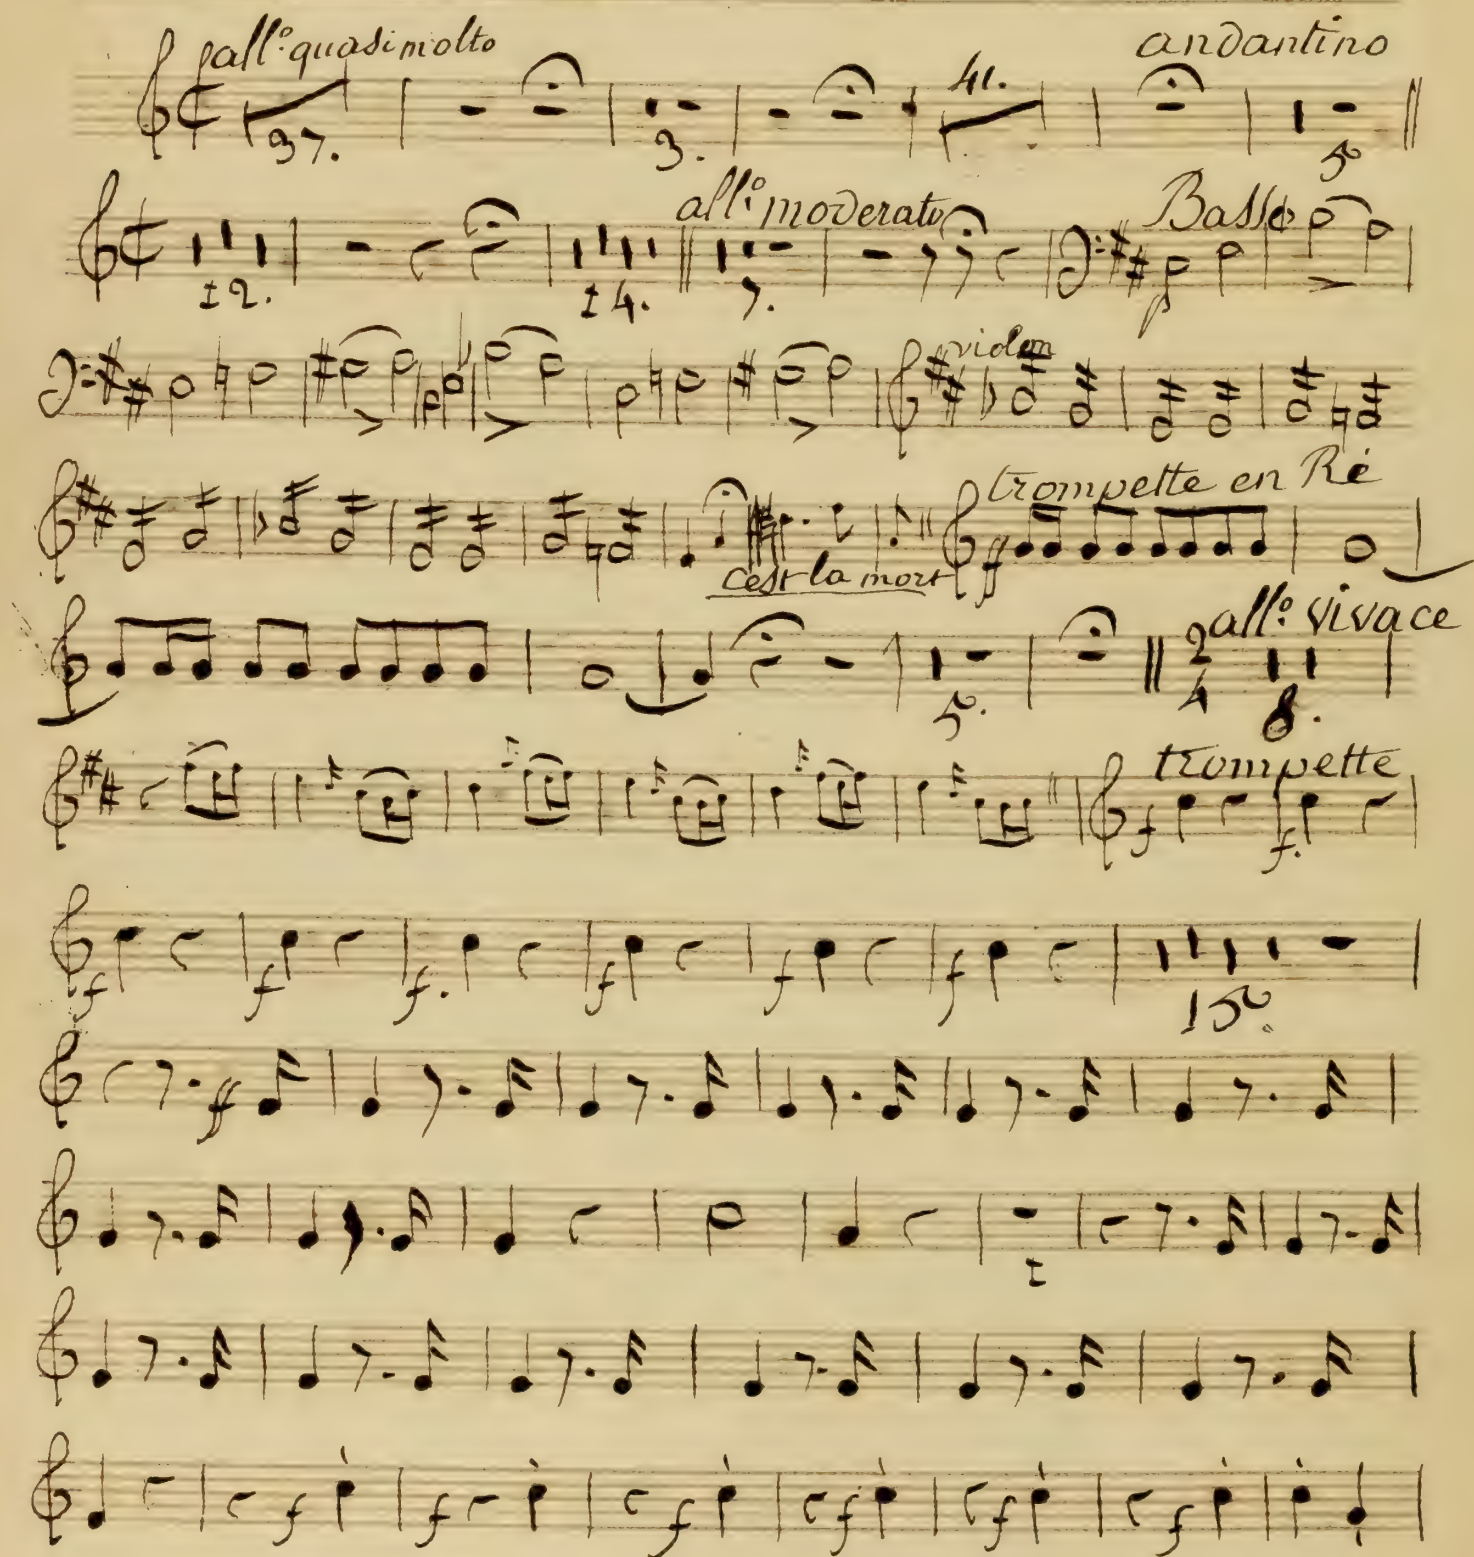 all.º quasi molto andantino
37. 3. 41. 5
all.º moderato Basso
12. 14. 7. p
violon
trompette en Ré
ff
c'est la mort
all.º vivace
5. 2/4 8.
trompette
f f.
f f f. f f f 15.
ff
1
f f f f f f